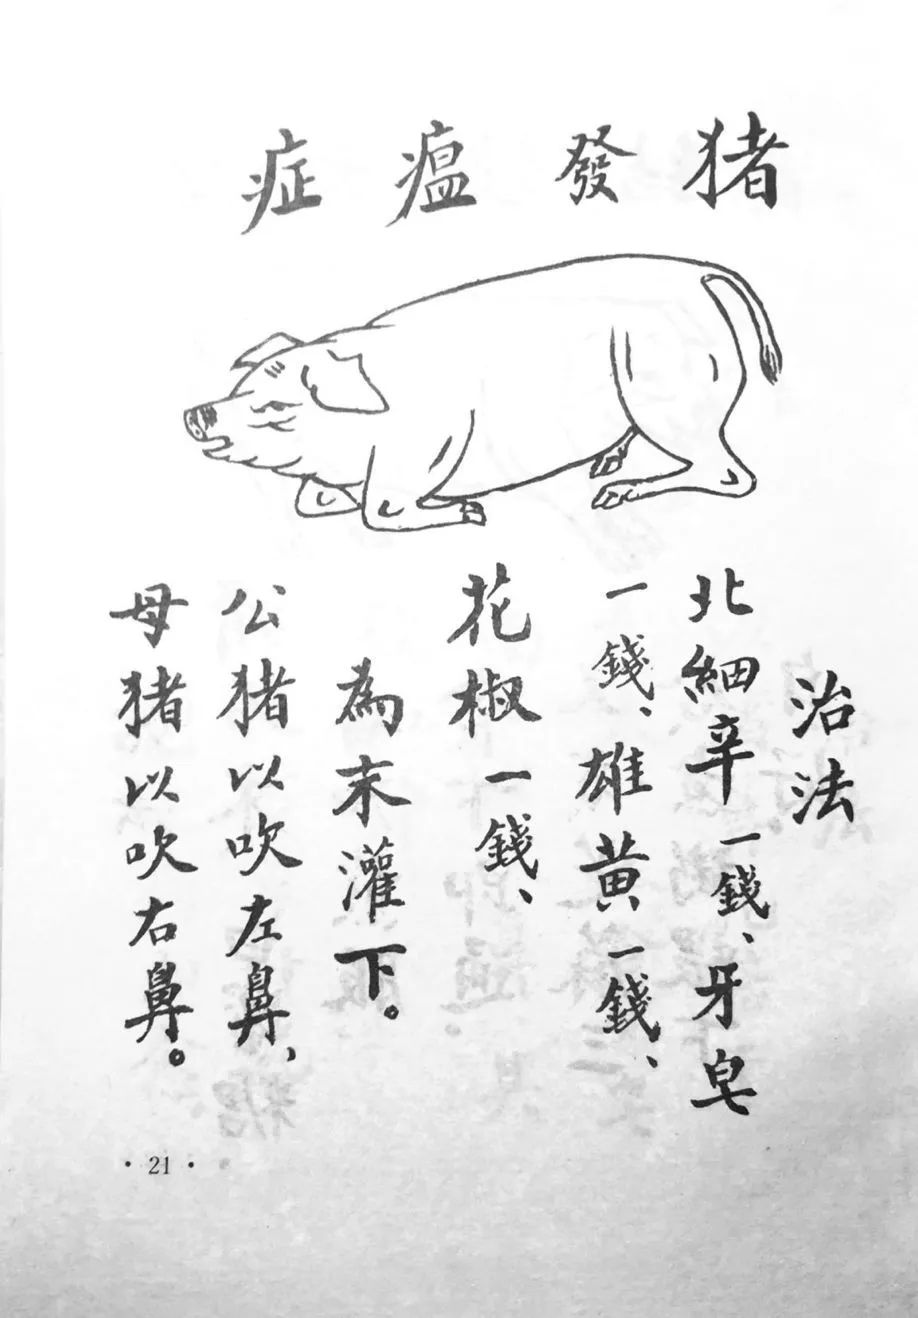 猪發瘟症
治法
北細辛一錢、牙皂
一錢、雄黄一錢、
花椒一錢、
為末灌下。
公猪以吹左鼻,
母猪以吹右鼻。
·21·